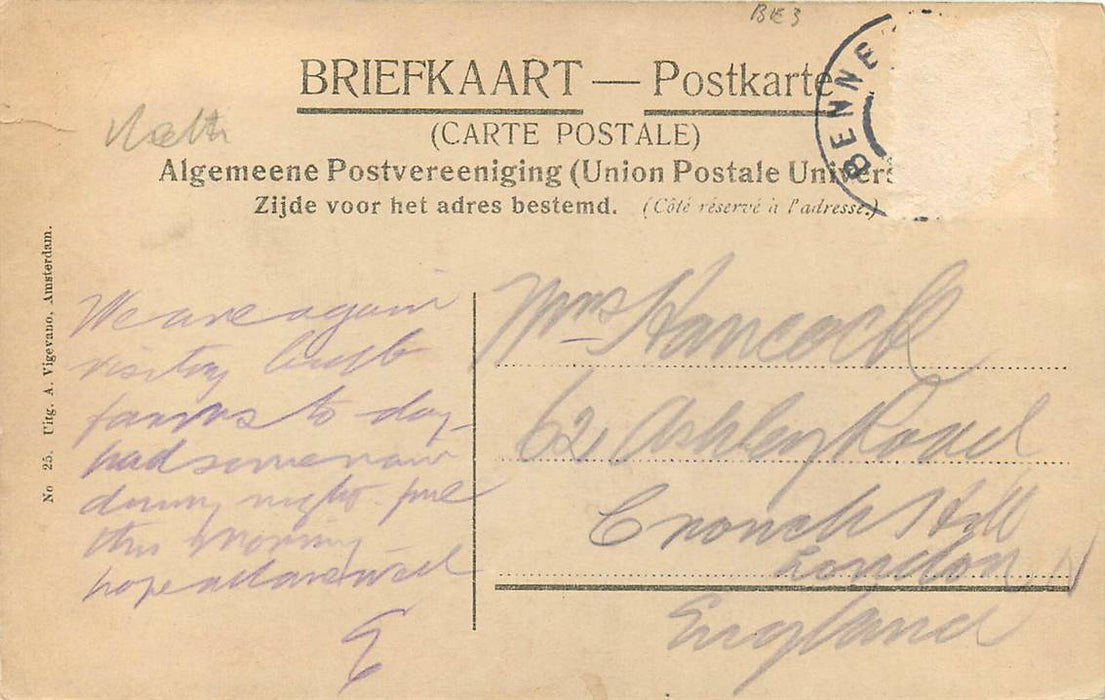 BE3
BRIEFKAART — Postkarte
(CARTE POSTALE)
Algemeene Postvereeniging (Union Postale Univers
Zijde voor het adres bestemd. (Côté réservé à l'adresse.)
BENNE
No 25. Uitg. A. Vigevano, Amsterdam.
We are again
visiting bulb
farms to day
had some rain
during night fine
this morning
hope all are well
E
Mrs Hancock
62 Ashley Road
Crouch Hill
London N
England